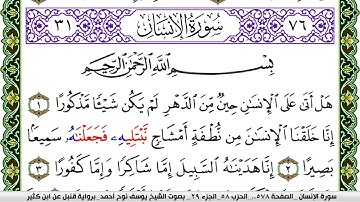 ٣١ سُورَةُ الإِنسَانِ ٧٦
بِسْمِ اللَّهِ الرَّحْمَٰنِ الرَّحِيمِ
هَلْ أَتَىٰ عَلَى الْإِنسَانِ حِينٌ مِّنَ الدَّهْرِ لَمْ يَكُن شَيْئًا مَّذْكُورًا ١
إِنَّا خَلَقْنَا الْإِنسَانَ مِن نُّطْفَةٍ أَمْشَاجٍ نَّبْتَلِيهِۦ فَجَعَلْنَٰهُۥ سَمِيعًۢا
بَصِيرًا ٢ إِنَّا هَدَيْنَٰهُ السَّبِيلَ إِمَّا شَاكِرًا وَإِمَّا كَفُورًا ٣
سورة الإنسان _ الصفحة ٥٧٨_ الحزب ٥٨_ الجزء ٢٩ _ بصوت الشيخ يوسف نوح أحمد_ برواية قنبل عن ابن كثير